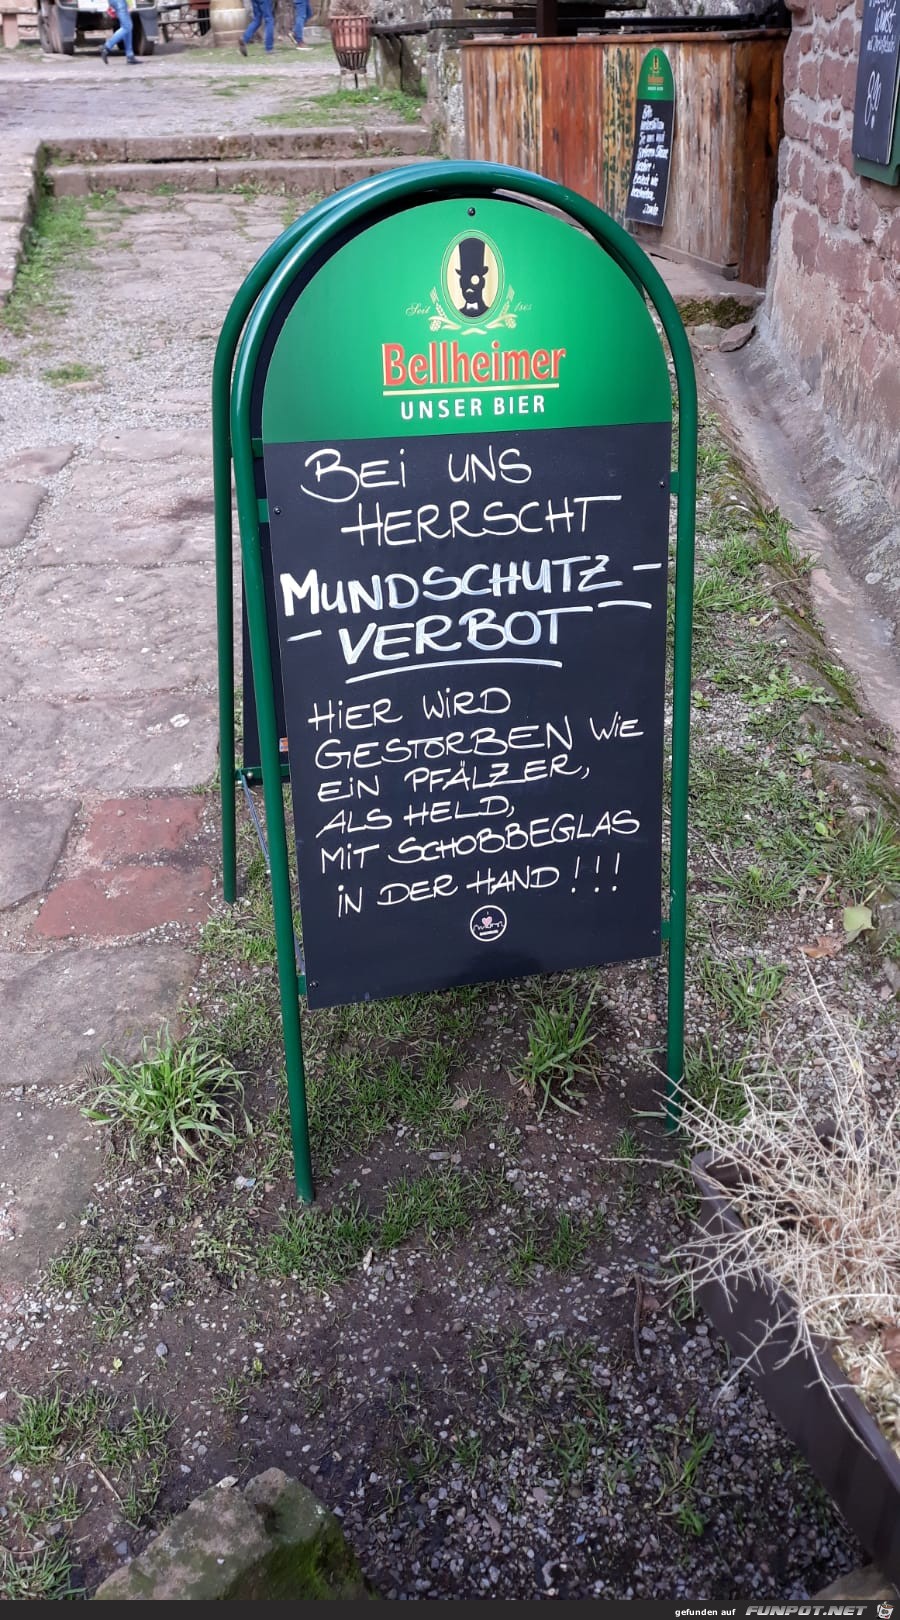 Seit 1865
Bellheimer
UNSER BIER
BEi UNS
HERRSCHT
MUNDSCHUTZ-
-VERBOT-
HiER WiRD
GESTORBEN WiE
EiN PFÄLZER,
ALS HELD,
MiT SCHOBBEGLAS
iN DER HAND!!!
Bellheimer
gefunden auf FUNPOT.NET